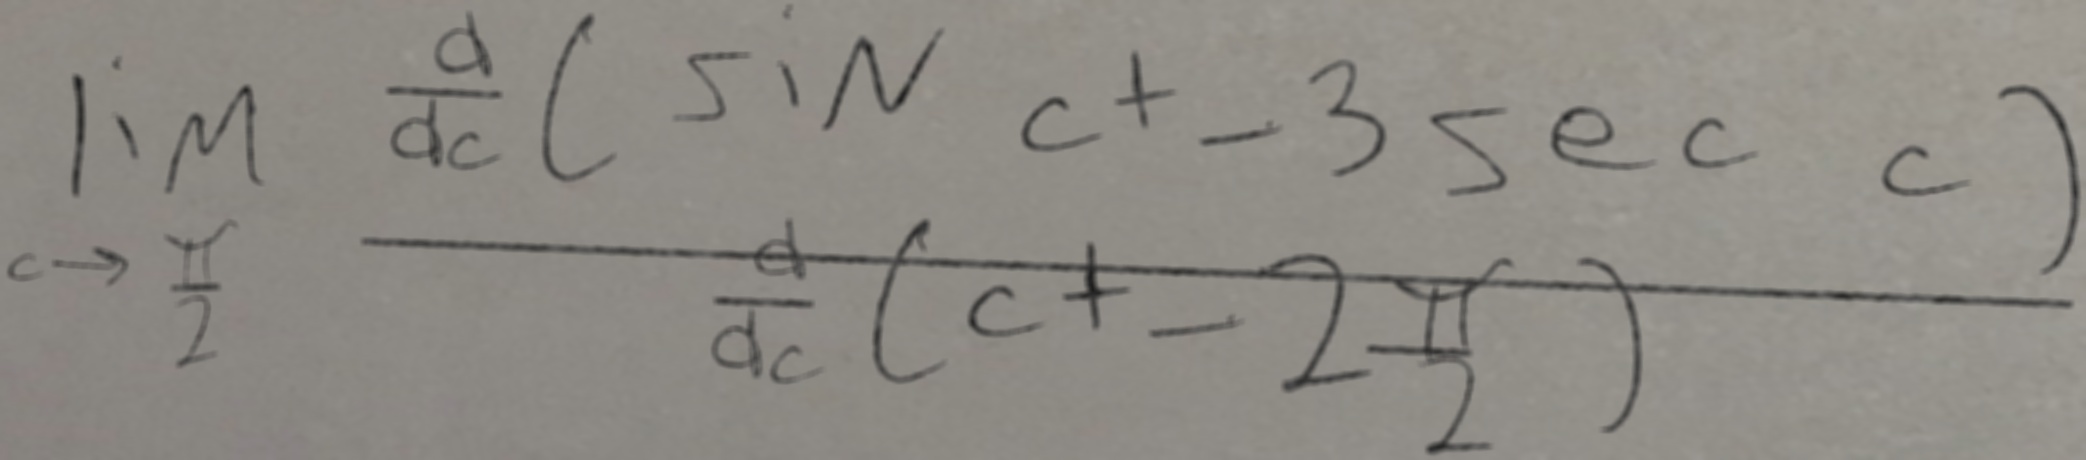 \lim_{c \to \frac{\pi}{2}} \frac{\frac{d}{dc}(\sin c + -3 \sec c)}{\frac{d}{dc}(c + -2\frac{\pi}{2})}